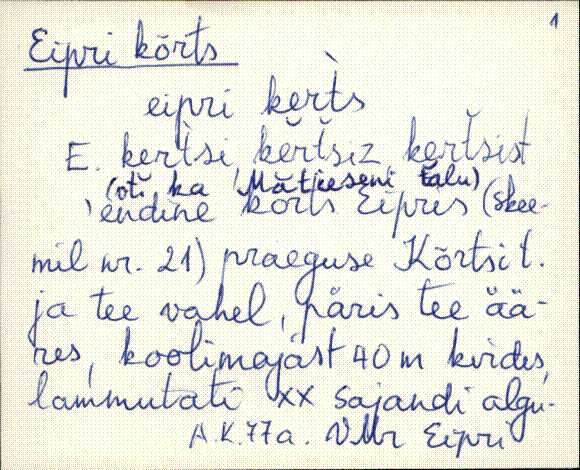 1
Eipri kõrts
eipri kert̀s
E. kert̀si, kert̆siz, kert̆sist
(ot̆i ka Măt̆ieseni t̆alu)
'endine kõrts Eipris (skee-
mil nr. 21) praeguse Kõrtsi t.
ja tee vahel, päris tee ää-
res, koolimajast 40 m
lammutati XX sajandi algu.
A.K. 77a. VMr Eipri